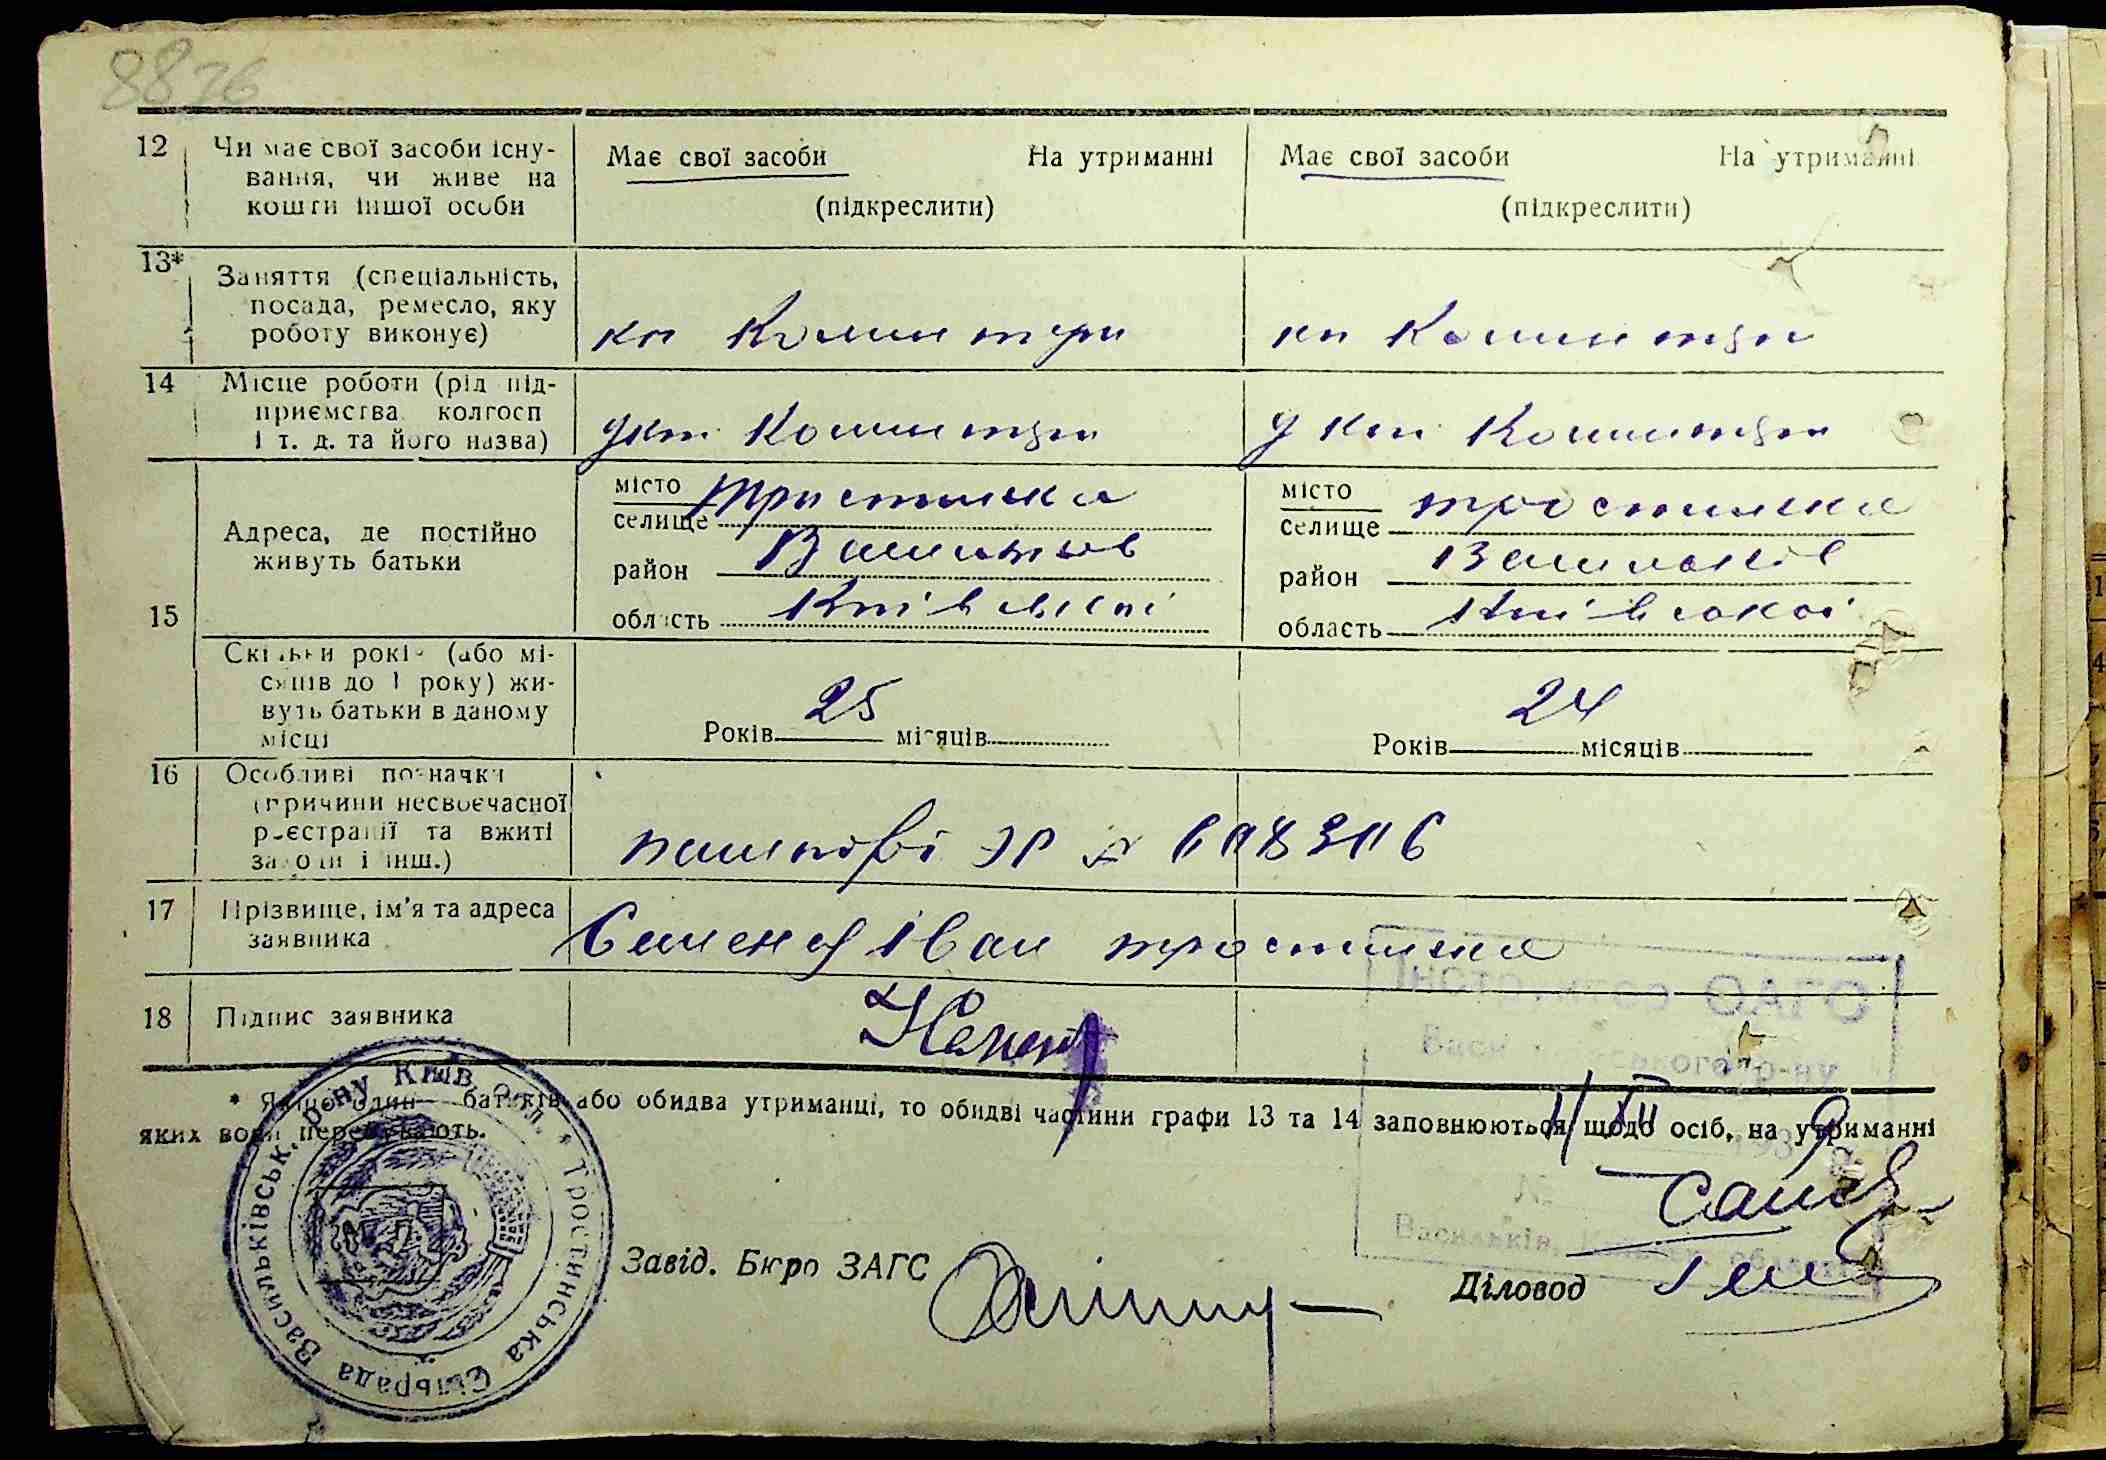 8876
12 Чи має свої засоби існу-
вання, чи живе на
кошти іншої особи
Має свої засоби На утриманні
(підкреслити)
Має свої засоби На утриманні
(підкреслити)
13* Заняття (спеціальність,
посада, ремесло, яку
роботу виконує)
кп Комінтерн
кп Комінтерн
14 Місце роботи (рід під-
приємства колгосп
і т. д. та його назва)
Комінтерн
Комінтерн
15 Адреса, де постійно
живуть батьки
місто
селище Тростинка
район Васильків
область Київської
місто
селище тростинка
район Васильків
область Київської
Скільки років (або мі-
сяців до 1 року) жи-
вуть батьки в даному
місці
Років 25 місяців
Років 24 місяців
16 Особливі позначки
(причини несвоєчасної
реєстрації та вжиті
заходи і інш.)
17 Прізвище, ім'я та адреса
заявника
Іван тростинка
18 Підпис заявника
* Якщо один батьків або обидва утриманці, то обидві частини графи 13 та 14 заповнюються щодо осіб, на утриманні
яких вони перебувають.
Тростинська Сільрада Васильківськ. р-ну Київ. обл. *
Завід. Бюро ЗАГС
Діловод
ЗАГС
Васильківського р-ну
193
№
Васильків,